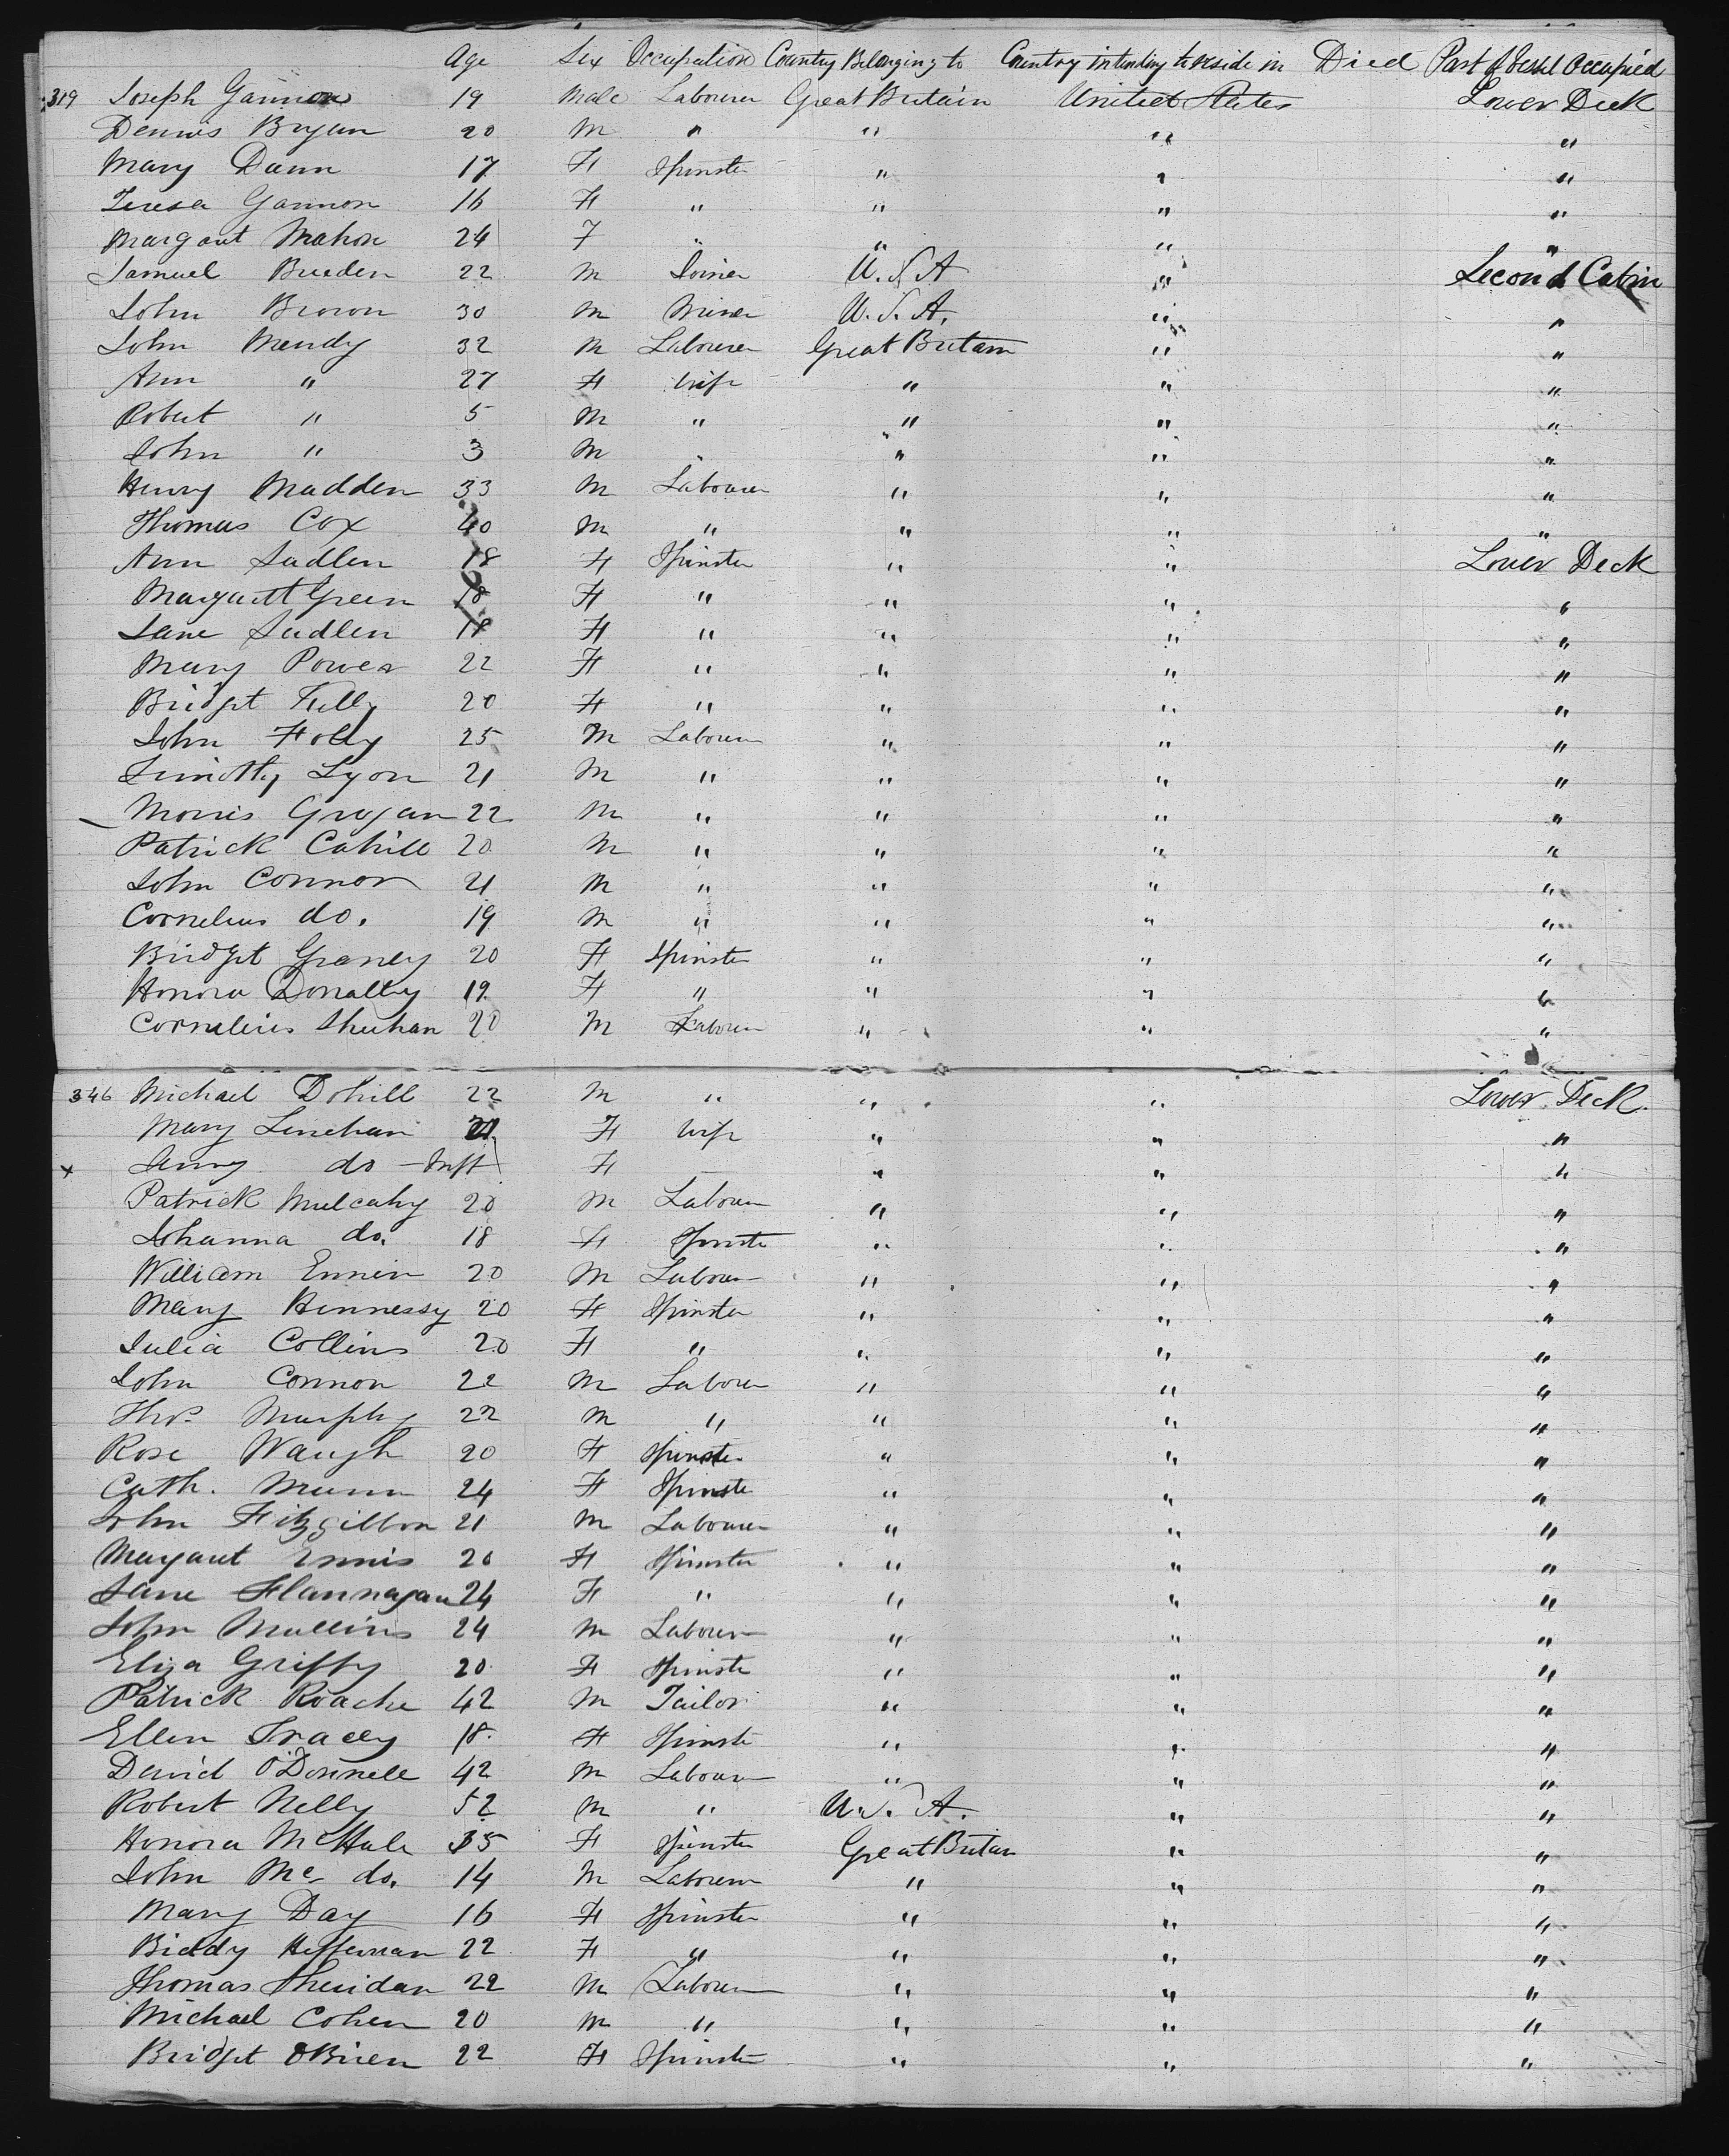 Age Sex Occupation Country Belonging to Country intending to reside in Died Part of Vessel Occupied
319 Joseph Gannon 19 Male Labourer Great Britain United States Lower Deck
Dennis Bryan 20 M " " " "
Mary Dunn 17 F Spinster " " "
Teresa Gannon 16 F " " " "
Margaret Mahon 24 F " " " "
Samuel Breeden 22 M Joiner U.S.A " Second Cabin
John Brown 30 M Miner U.S.A. " "
John Mendy 32 M Labourer Great Britain " "
Ann " 27 F Wife " " "
Robert " 5 M " " " "
John " 3 M " " " "
Henry Madden 33 M Labourer " " "
Thomas Cox 40 M " " " "
Ann Sadler 18 F Spinster " " Lower Deck
Margaret Green 18 F " " " "
Jane Sadler 18 F " " " "
Mary Power 22 F " " " "
Bridget 20 F " " " "
John Folly 25 M Labourer " " "
Timothy Lyon 21 M " " " "
Morris Grogan 22 M " " " "
Patrick Cahill 20 M " " " "
John Connor 21 M " " " "
Cornelius do. 19 M " " " "
Bridget Graney 20 F Spinster " " "
Honora Donalty 19 F " " " "
Cornelius Sheehan 20 M Labourer " " "
346 Michael Dohill 22 M " " " Lower Deck
Mary Linehan F Wife " " "
x Jenny do - Inft F " " "
Patrick Mulcahy 20 M Labourer " " "
Johanna do. 18 F Spinster " " "
William Ennin 20 M Labourer " " "
Mary Hennessy 20 F Spinster " " "
Julia Collins 20 F " " " "
John Connor 22 M Labourer " " "
Thos Murphy 22 M " " " "
Rose Waugh 20 F Spinster " " "
Cath. Munn 24 F Spinster " " "
John Fitzgibbon 21 M Labourer " " "
Margaret Ennis 20 F Spinster " " "
Jane Flannagan 24 F " " " "
John Mullins 24 M Labourer " " "
Eliza Griffy 20 F Spinster " " "
Patrick Roache 42 M Tailor " " "
Ellen Tracey 18 F Spinster " " "
David O'Donnell 42 M Labourer " " "
Robert Nelly 52 M " U.S.A. " "
Honora McHale 35 F Spinster Great Britain " "
John Mc do. 14 M Labourer " " "
Mary Day 16 F Spinster " " "
Biddy Heffernan 22 F " " " "
Thomas Sheridan 22 M Labourer " " "
Michael Cohen 20 M " " " "
Bridget OBrien 22 F Spinster " " "